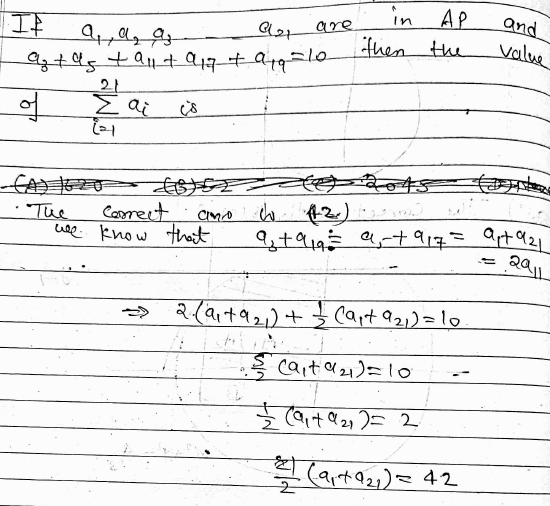 If a₁, a₂, a₃ ........ a₂₁ are in AP and
a₃ + a₅ + a₁₁ + a₁₇ + a₁₉ = 10 then the value
of 21∑i=1 aᵢ is
(A) 1620 (B) 52 (C) 2045 (D)
The correct ans is (42)
we know that a₃ + a₁₉ = a₅ + a₁₇ = a₁ + a₂₁
= 2a₁₁
⇒ 2·(a₁ + a₂₁) + 1/2 (a₁ + a₂₁) = 10
5/2 (a₁ + a₂₁) = 10
1/2 (a₁ + a₂₁) = 2
21/2 (a₁ + a₂₁) = 42